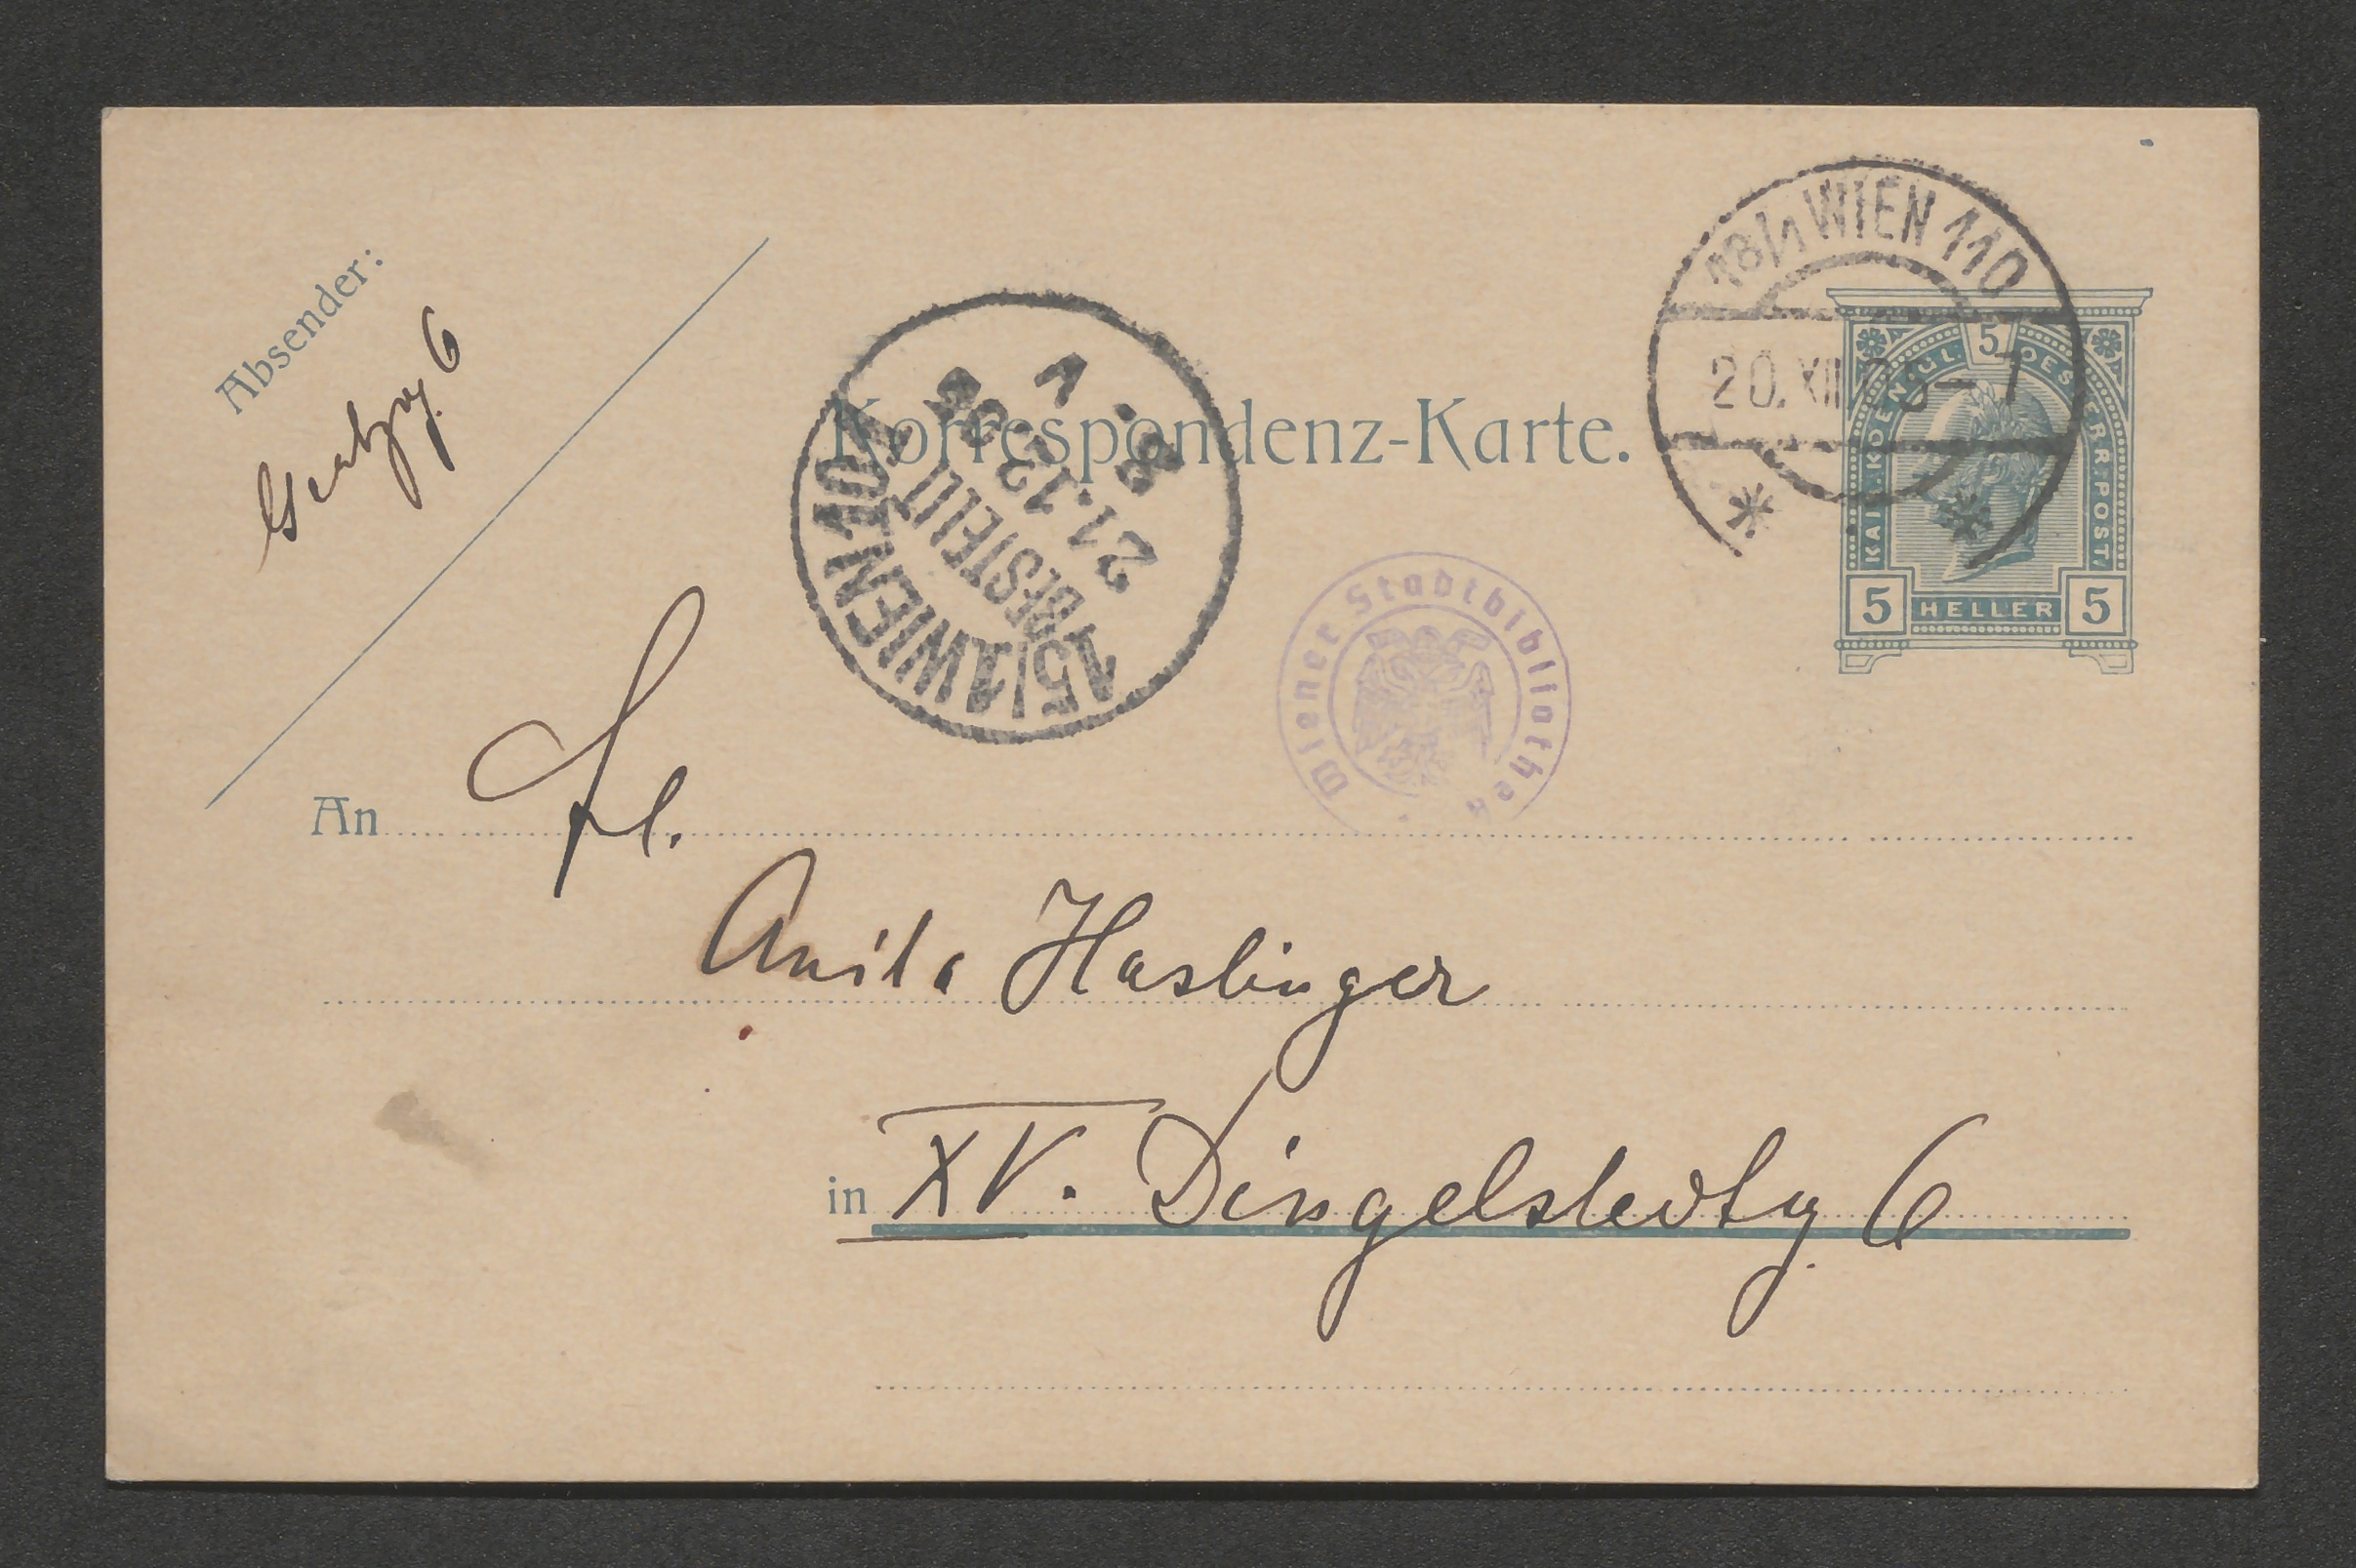 Absender:
Gentzg. 6
Korrespondenz-Karte.
18/1 WIEN 110
20. XII
KAIS. KOEN IGL. 5 OESTERR. POST
5 HELLER 5
15/1 WIEN 101
BESTELLT
21.12.
8. V
Wiener Stadtbibliothek
An Frl.
Anita Haslinger
in XV. Dingelstedtg. 6